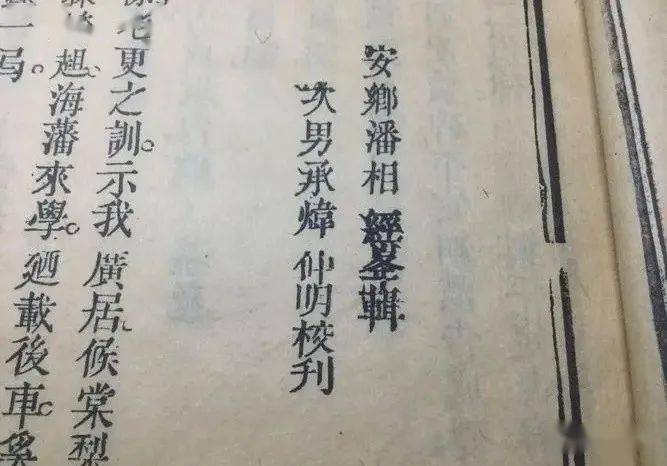 安鄉潘相經峯輯
次男承煒仲明校刊
老更之訓。示我廣居。候棠梨
趨海藩來學。廼載後車。奚
一寫。